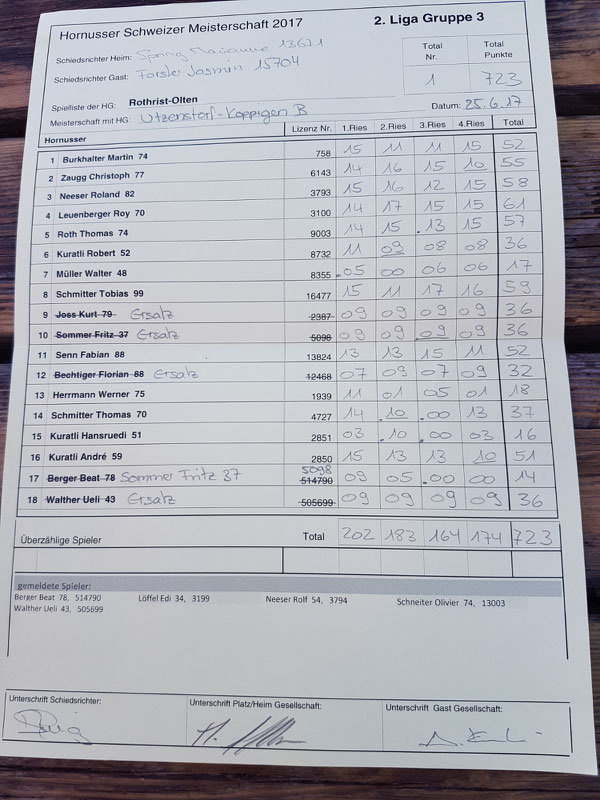 Hornusser Schweizer Meisterschaft 2017 2. Liga Gruppe 3
Schiedsrichter Heim: 13671 Total Nr. Total Punkte
Schiedsrichter Gast: Forster Jasmin 15704 1 723
Spielliste der HG: Rothrist-Olten
Meisterschaft mit HG: Utzenstorf-Koppigen B Datum: 25.6.17
Hornusser Lizenz Nr. 1.Ries 2.Ries 3.Ries 4.Ries Total
1 Burkhalter Martin 74 758 15 11 11 15 52
2 Zaugg Christoph 77 6143 14 16 15 10 55
3 Neeser Roland 82 3793 15 16 12 15 58
4 Leuenberger Roy 70 3100 14 17 15 15 61
5 Roth Thomas 74 9003 14 15 .13 15 57
6 Kuratli Robert 52 8732 11 09 08 08 36
7 Müller Walter 48 8355 .05 00 06 06 17
8 Schmitter Tobias 99 16477 15 11 17 16 59
9 Joss Kurt 79 Ersatz 2387 09 09 09 09 36
10 Sommer Fritz 37 Ersatz 5098 09 09 09 09 36
11 Senn Fabian 88 13824 13 13 15 11 52
12 Bechtiger Florian 88 Ersatz 12468 07 09 07 09 32
13 Herrmann Werner 75 1939 11 01 05 01 18
14 Schmitter Thomas 70 4727 14 .10 .00 13 37
15 Kuratli Hansruedi 51 2851 03 .10 .00 03 16
16 Kuratli André 59 2850 15 13 13 10 51
17 Berger Beat 78 Sommer Fritz 37 5098 514790 09 05 .00 00 14
18 Walther Ueli 43 Ersatz 505699 09 09 09 09 36
Überzählige Spieler Total 202 183 164 174 723
gemeldete Spieler:
Berger Beat 78, 514790 Löffel Edi 34, 3199 Neeser Rolf 54, 3794 Schneiter Olivier 74, 13003
Walther Ueli 43, 505699
Unterschrift Schiedsrichter: Unterschrift Platz/Heim Gesellschaft: Unterschrift Gast Gesellschaft: